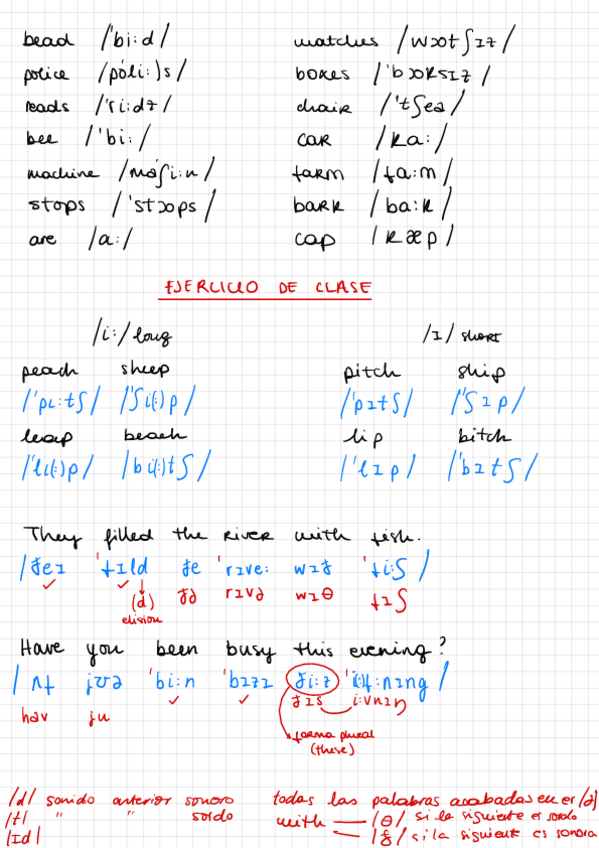 bead /ˈbi:d/ matches /wɔtʃɪz/
police /pəˈli:)s/ boxes /ˈbɔksɪz/
reads /ˈri:dz/ chair /ˈtʃeə/
bee /ˈbi:/ car /ka:/
machine /məˈʃi:n/ farm /fa:m/
stops /ˈstɔps/ bark /ba:k/
are /a:/ cap /kæp/
EJERCICIO DE CLASE
/i:/ long /ɪ/ short
peach sheep pitch ship
/ˈpi:tʃ/ /ˈʃi(:)p/ /ˈpɪtʃ/ /ˈʃɪp/
leap beach lip bitch
/ˈli(:)p/ /bi(:)tʃ/ /ˈlɪp/ /ˈbɪtʃ/
They filled the river with fish.
/ðeɪ ˈfɪld ðe ˈrɪve: wɪð ˈfi:ʃ/
(d) ðə rɪvə wɪθ fɪʃ
elision
Have you been busy this evening?
jʊə ˈbi:n ˈbɪzɪ ði:z
hav ju ðɪs i:vnɪŋ
forma plural
(these)
/d/ sonido anterior sonoro todas las palabras acabadas en er /ə/
/t/ " " sordo with — /θ/ si la siguiente es sordo
/ɪd/ — /ð/ si la siguiente es sonora